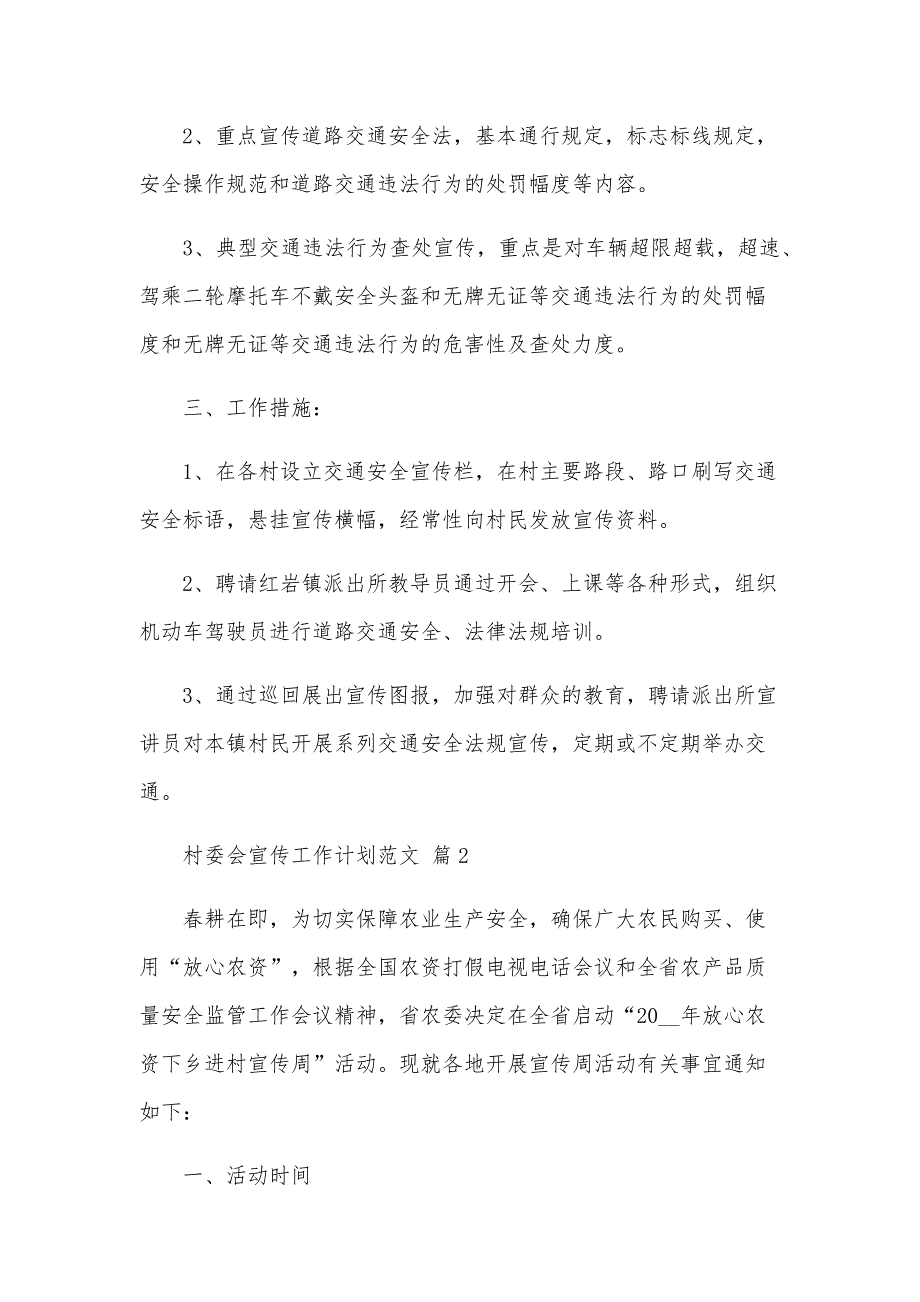 2、重点宣传道路交通安全法，基本通行规定，标志标线规定，
安全操作规范和道路交通违法行为的处罚幅度等内容。
3、典型交通违法行为查处宣传，重点是对车辆超限超载，超速、
驾乘二轮摩托车不戴安全头盔和无牌无证等交通违法行为的处罚幅
度和无牌无证等交通违法行为的危害性及查处力度。
三、工作措施：
1、在各村设立交通安全宣传栏，在村主要路段、路口刷写交通
安全标语，悬挂宣传横幅，经常性向村民发放宣传资料。
2、聘请红岩镇派出所教导员通过开会、上课等各种形式，组织
机动车驾驶员进行道路交通安全、法律法规培训。
3、通过巡回展出宣传图报，加强对群众的教育，聘请派出所宣
讲员对本镇村民开展系列交通安全法规宣传，定期或不定期举办交
通。
村委会宣传工作计划范文 篇2
春耕在即，为切实保障农业生产安全，确保广大农民购买、使
用“放心农资”，根据全国农资打假电视电话会议和全省农产品质
量安全监管工作会议精神，省农委决定在全省启动“20__年放心农
资下乡进村宣传周”活动。现就各地开展宣传周活动有关事宜通知
如下：
一、活动时间